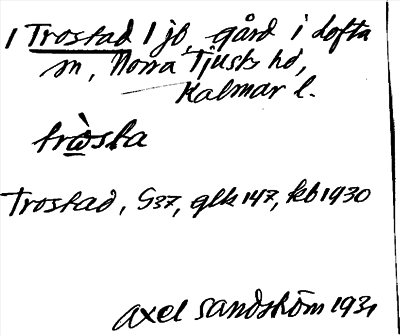 / Trostad / jb, gård i Lofta
sn, Norra Tjusts hd,
Kalmar l.
tròsta
Trostad, S37, glk 147, kb 1930
Axel Sandström 1931